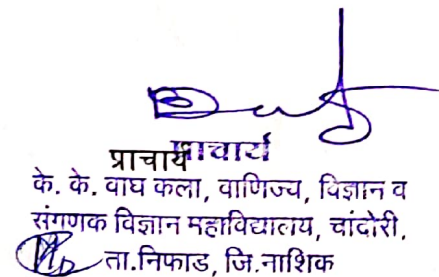 प्राचार्य
प्राचार्य
के. के. वाघ कला, वाणिज्य, विज्ञान व
संगणक विज्ञान महाविद्यालय, चांदोरी,
ता.निफाड, जि.नाशिक